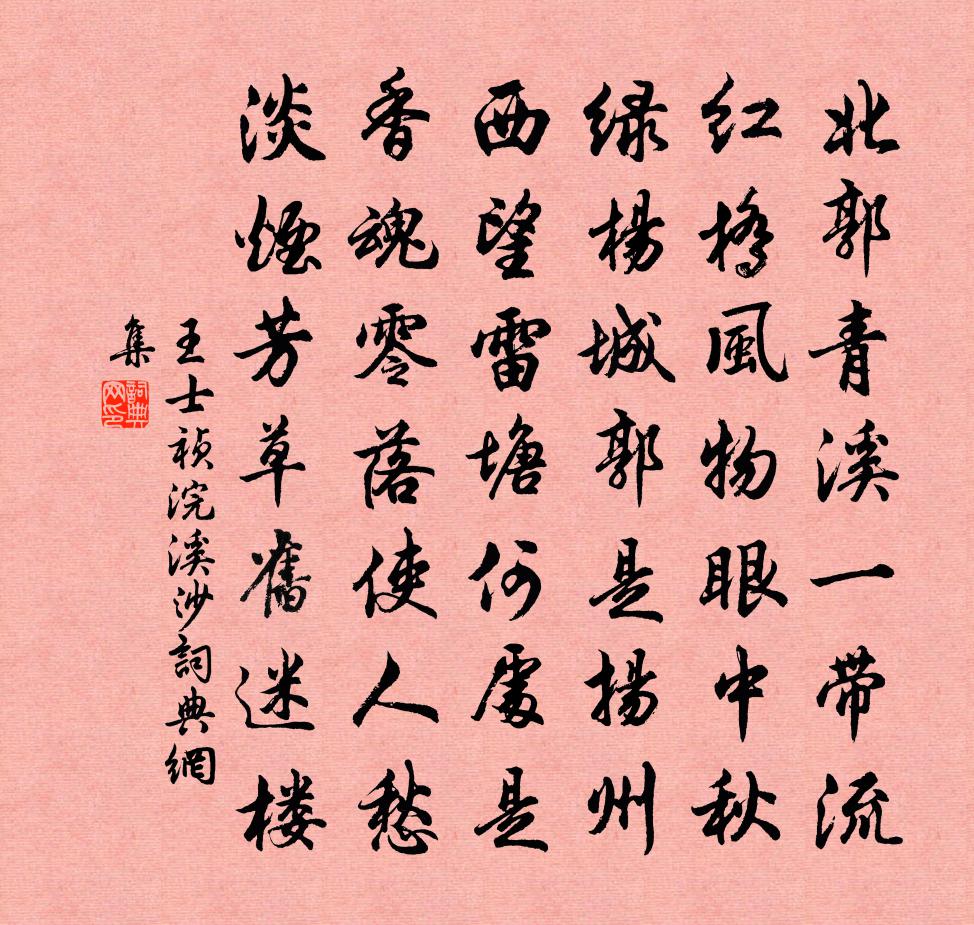 北郭青溪一带流
红橋風物眼中秋
绿楊城郭是揚州
西望雷塘何處是
香魂零落使人愁
淡煙芳草舊迷楼
王士祯浣溪沙詞典網
集
詞典網印